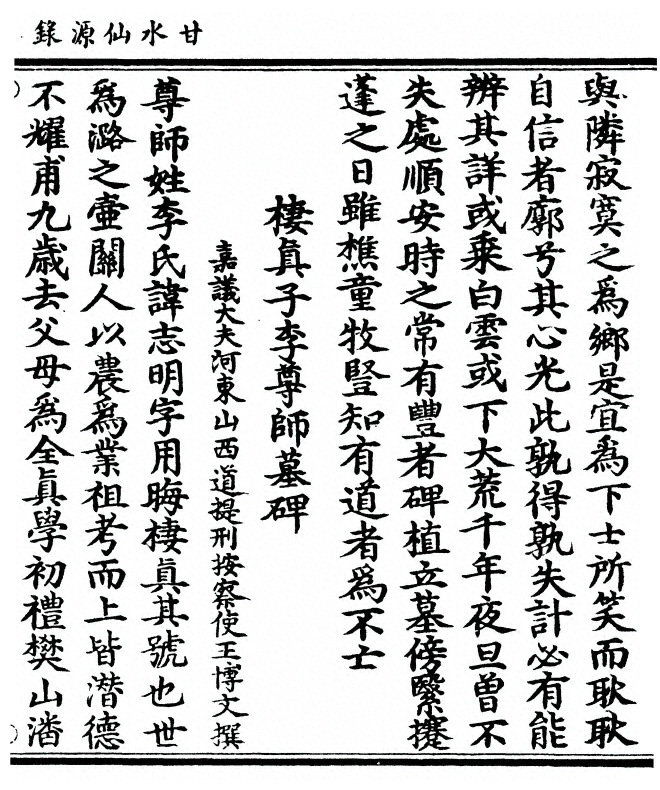 甘水仙源錄
與隣寂寞之爲鄉是宜爲下士所笑而耿耿
自信者廓兮其心光此孰得孰失計必有能
辨其詳或乘白雲或下大荒千年夜旦曾不
失處順安時之常有豐者碑植立墓傍繄攓
蓬之日雖樵童牧豎知有道者爲不亡
棲眞子李尊師墓碑
嘉議大夫河東山西道提刑按察使王博文撰
尊師姓李氏諱志明字用晦棲眞其號也世
爲潞之壺關人以農爲業祖考而上皆潛德
不耀甫九歲去父母爲全眞學初禮樊山潘